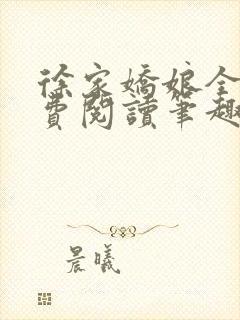 徐家嬌娘全
費閱讀筆趣
晨曦